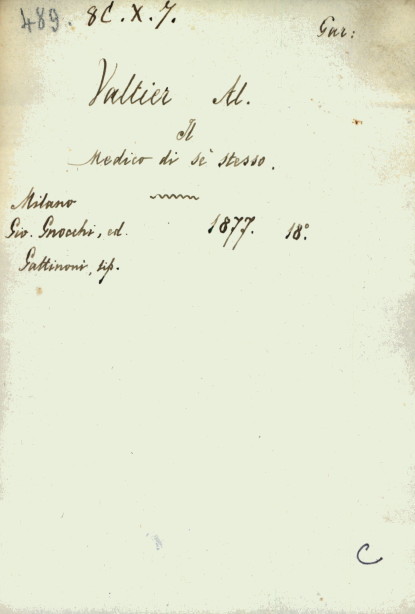 489. 8C. X. 7.
Gar:
Valtier Al.
Il
Medico di sè stesso.
Milano
Gio. Gnocchi, ed. 1877. 18°
Gattinoni, tip.
C